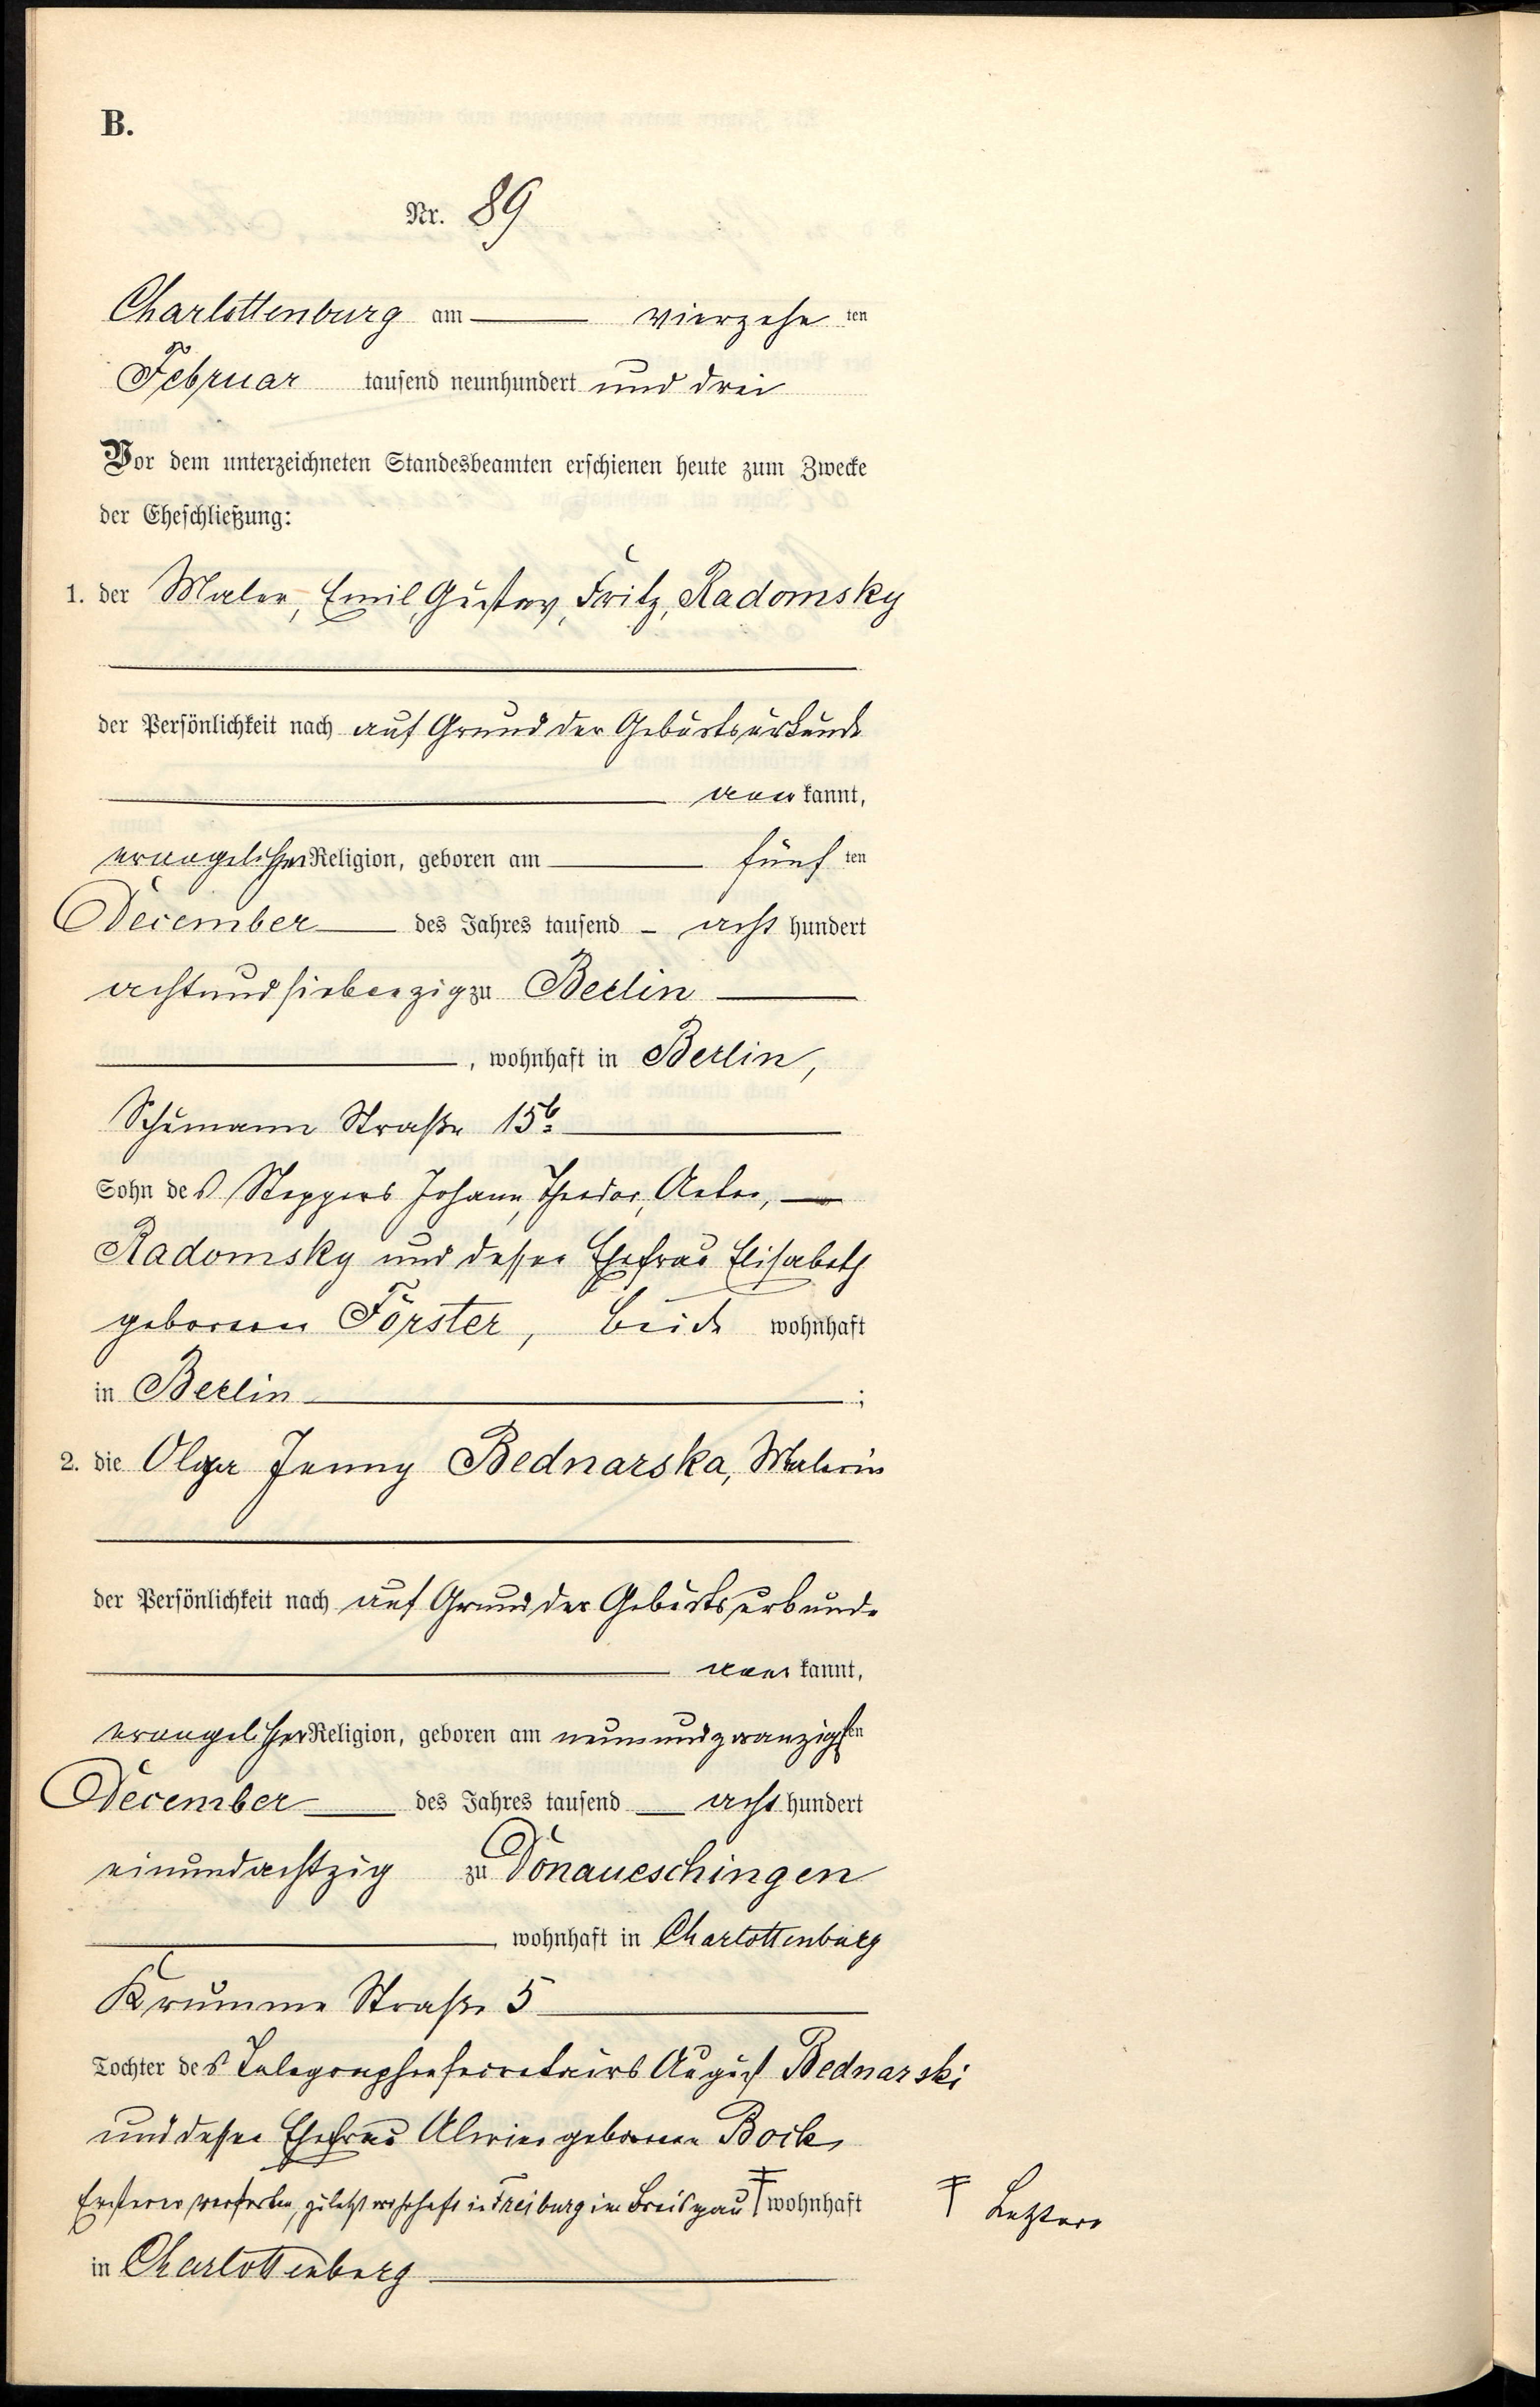 B.
Nr. 89
Charlottenburg am vierzehnten
Februar tausend neunhundert und drei
Vor dem unterzeichneten Standesbeamten erschienen heute zum Zwecke
der Eheschließung:
1. der Maler, Emil, Gustav, Fritz, Radomsky
der Persönlichkeit nach auf Grund der Geburtsurkunde
anerkannt,
evangelischer Religion, geboren am fünften
December des Jahres tausend acht hundert
achtundsiebenzig zu Berlin
, wohnhaft in Berlin,
Schumann Straße 15b
Sohn des Steppers Johann, Theodor,
Radomsky und dessen Ehefrau Elisabeth
geborenen Förster, beide wohnhaft
in Berlin ;
2. die Olga Jenny Bednarska, Malerin
der Persönlichkeit nach auf Grund der Geburtsurkunde
anerkannt,
evangelischer Religion, geboren am neunundzwanzigsten
December des Jahres tausend acht hundert
einundachtzig zu Donaueschingen
, wohnhaft in Charlottenburg
Krumme Straße 5
Tochter des Telegraphensecretairs August Bednarski
und dessen Ehefrau Alwine geborenen Bock,
Ersterer verstorben, zuletzt wohnhaft in Freiburg im Breisgau wohnhaft
Letztere
in Charlottenburg